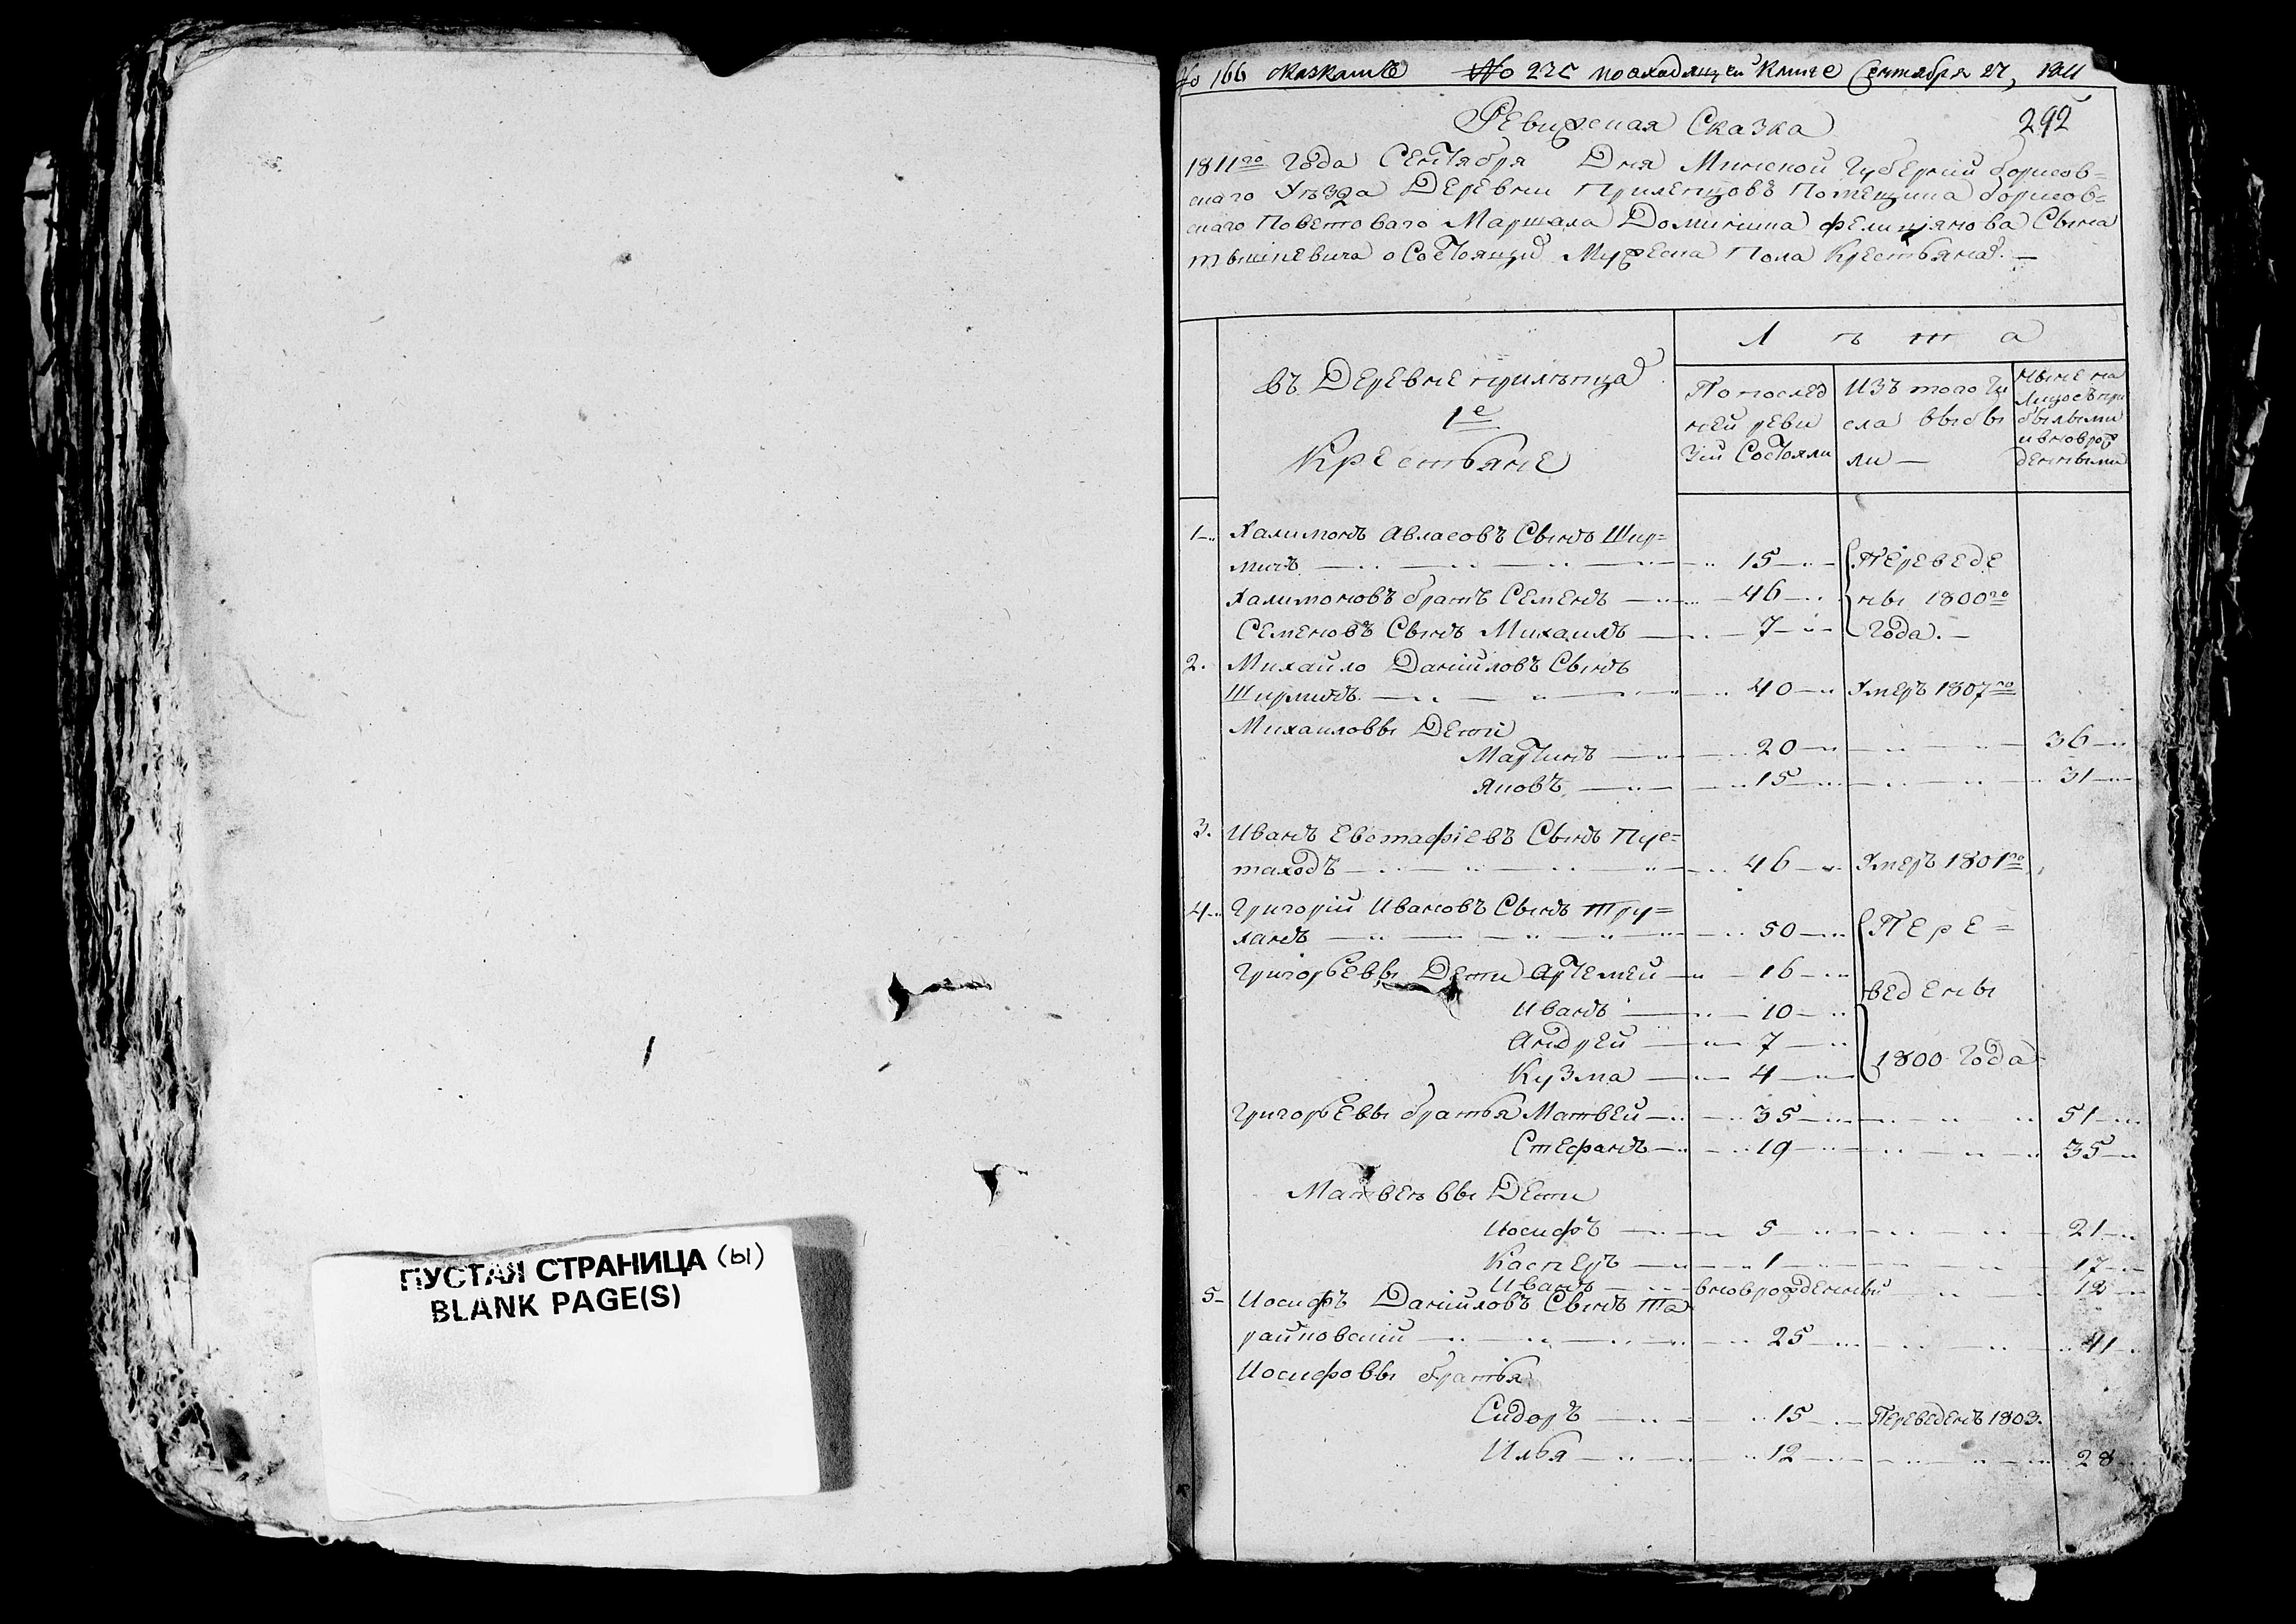 ПУСТАЯ СТРАНИЦА (ы)
BLANK PAGE(S)
No 166 No 225 по входящей Книге Сентября 27, 1811
Ревижская Сказка
292
1811го Года Сентября Дня Минской Губернии борисов=
скаго Уѣзда Деревни Прилепцовъ Помещика борисов=
скаго Поветоваго Маршала Доминика Фелицiянова Сына
тышкевича о Состоящихъ Мужеска Пола Крестьянахъ. —
Лѣта
въ Деревне прилѣпцахъ
1е
Крестьяне
По послед
ней реви
зiи Состояли
Изъ того Чи
сла выбы
ли —
Ныне на
Лицо съ при
былыми
и вноврож
денными
1 Халимонъ Авласовъ Сынъ Шир=
минъ 15 Переведе
Халимоновъ братъ Семенъ 46 ны 1800го
Семеновъ Сынъ Михаилъ 7 Года. —
2. Михайло Данiиловъ Сынъ
Ширминъ 40 Умеръ 1807го
Михаиловы Дети
Мартинъ 20 36
Яковъ 15 31
3. Иванъ Евстафiевъ Сынъ Пус=
таходъ 46 Умеръ 1801го
4 Григорiй Ивановъ Сынъ Тру=
ханъ 50 Пере=
Григорьевы Дети Артемей 16
ведены
Иванъ 10
Андрей 7
1800 Года
Кузма 4
Григорьевы братья Матвей 35 51
Стефанъ 19 35
Матвеевы Дети
Иосифъ 5 21
Касперъ 1 17
Иванъ вновророжденный 12
5 Иосифъ Данiиловъ Сынъ Та
райковскiй 25 41
Иосифовы братья
Сидоръ 15 Переведенъ 1803.
Илья 12 28